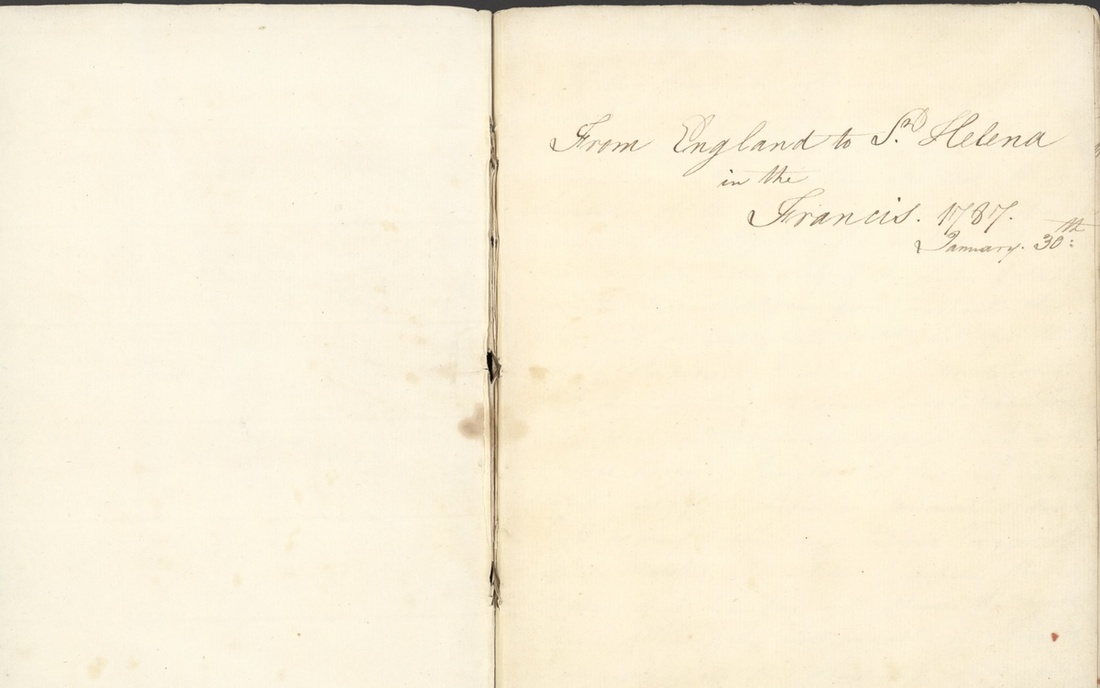 From England to St. Helena
in the
Francis. 1787.
January. 30th: